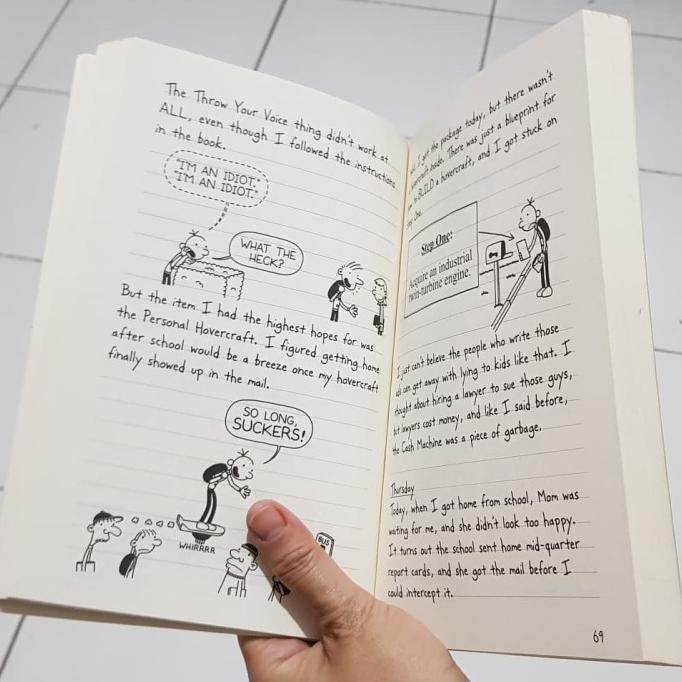 The Throw Your Voice thing didn't work at
ALL, even though I followed the instructions
in the book.
"I'M AN IDIOT.
I'M AN IDIOT."
WHAT THE
HECK?
But the item I had the highest hopes for was
the Personal Hovercraft. I figured getting home
after school would be a breeze once my hovercraft
finally showed up in the mail.
SO LONG,
SUCKERS!
WHIRRRR
BUS
I got the package today, but there wasn't
hovercraft inside. There was just a blueprint for
to BUILD a hovercraft, and I got stuck on
Step One.
Step One:
Acquire an industrial
twin-turbine engine.
I just can't believe the people who write those
ads can get away with lying to kids like that. I
thought about hiring a lawyer to sue those guys,
but lawyers cost money, and like I said before,
the Cash Machine was a piece of garbage.
Thursday
Today, when I got home from school, Mom was
waiting for me, and she didn't look too happy.
It turns out the school sent home mid-quarter
report cards, and she got the mail before I
could intercept it.
69